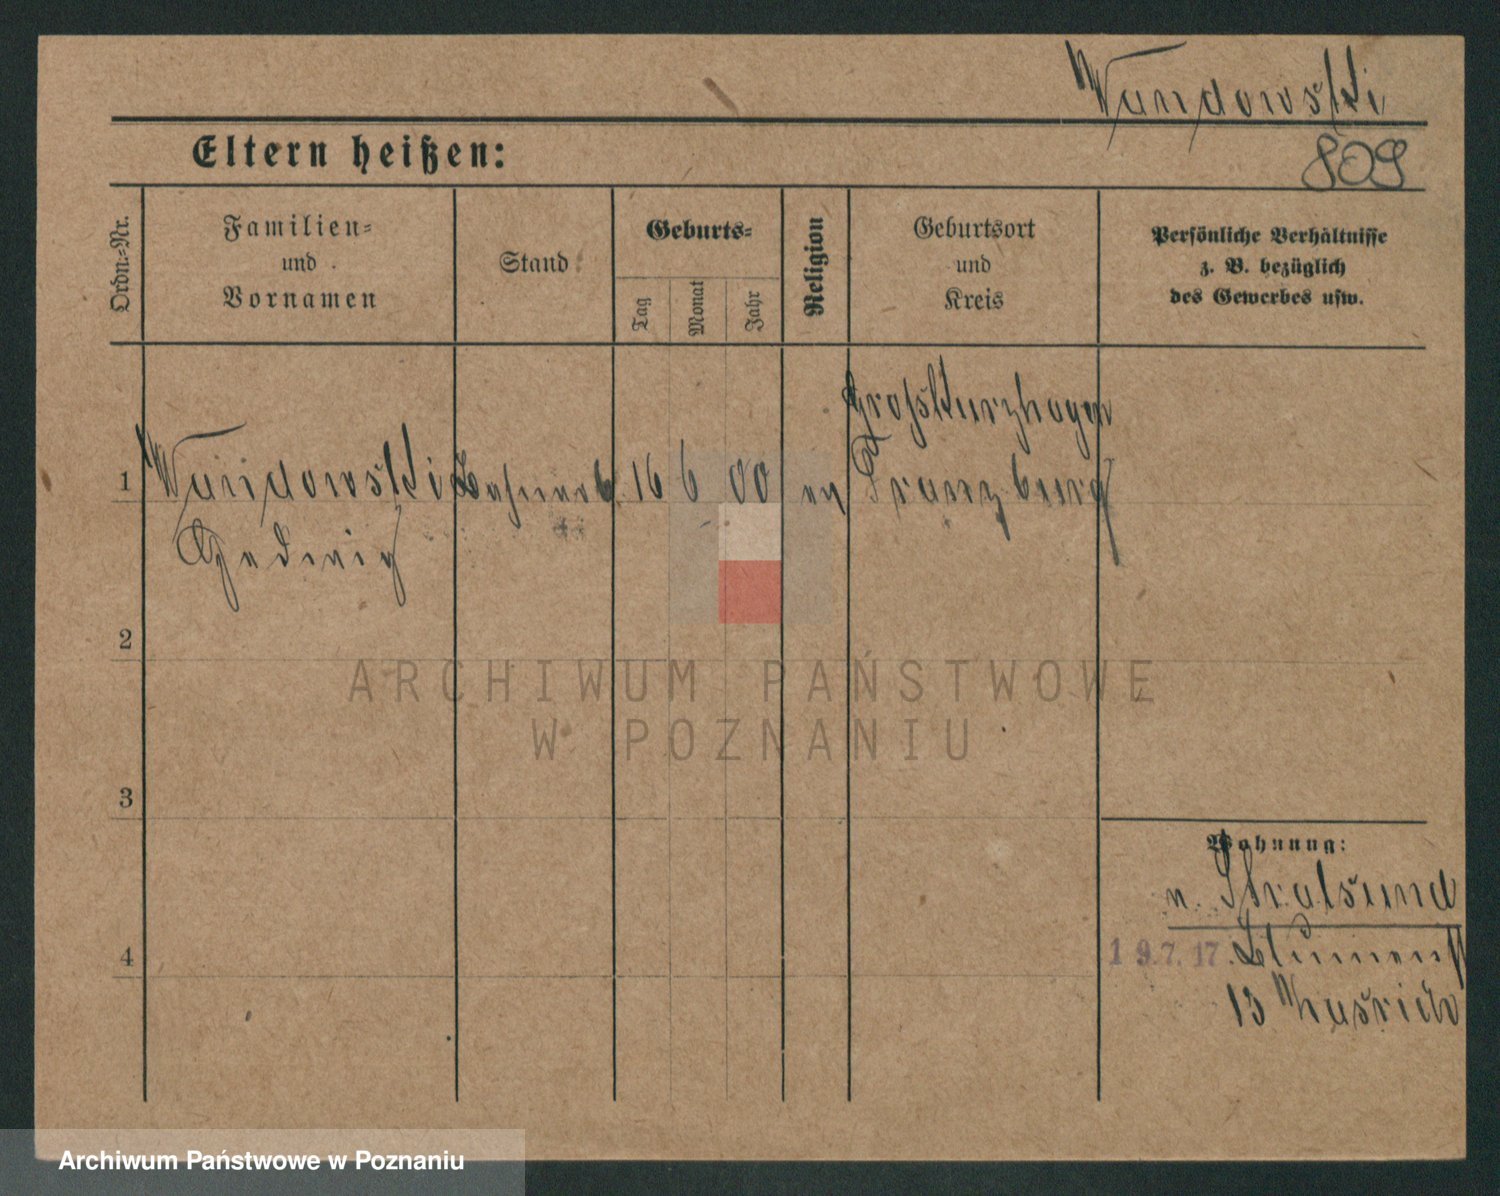 Wundowski
809
Eltern heißen:
Ordn.-Nr.
Familien-
und
Vornamen
Stand
Geburts-
Tag
Monat
Jahr
Religion
Geburtsort
und
Kreis
Persönliche Verhältnisse
z. B. bezüglich
des Gewerbes usw.
Franzburg
1 Wundowski 16 6 00 ev
Hedwig
2
3
4
Wohnung:
n. Stralsund
19.7.17. Blumenst
13
ARCHIWUM PAŃSTWOWE
W POZNANIU
Archiwum Państwowe w Poznaniu